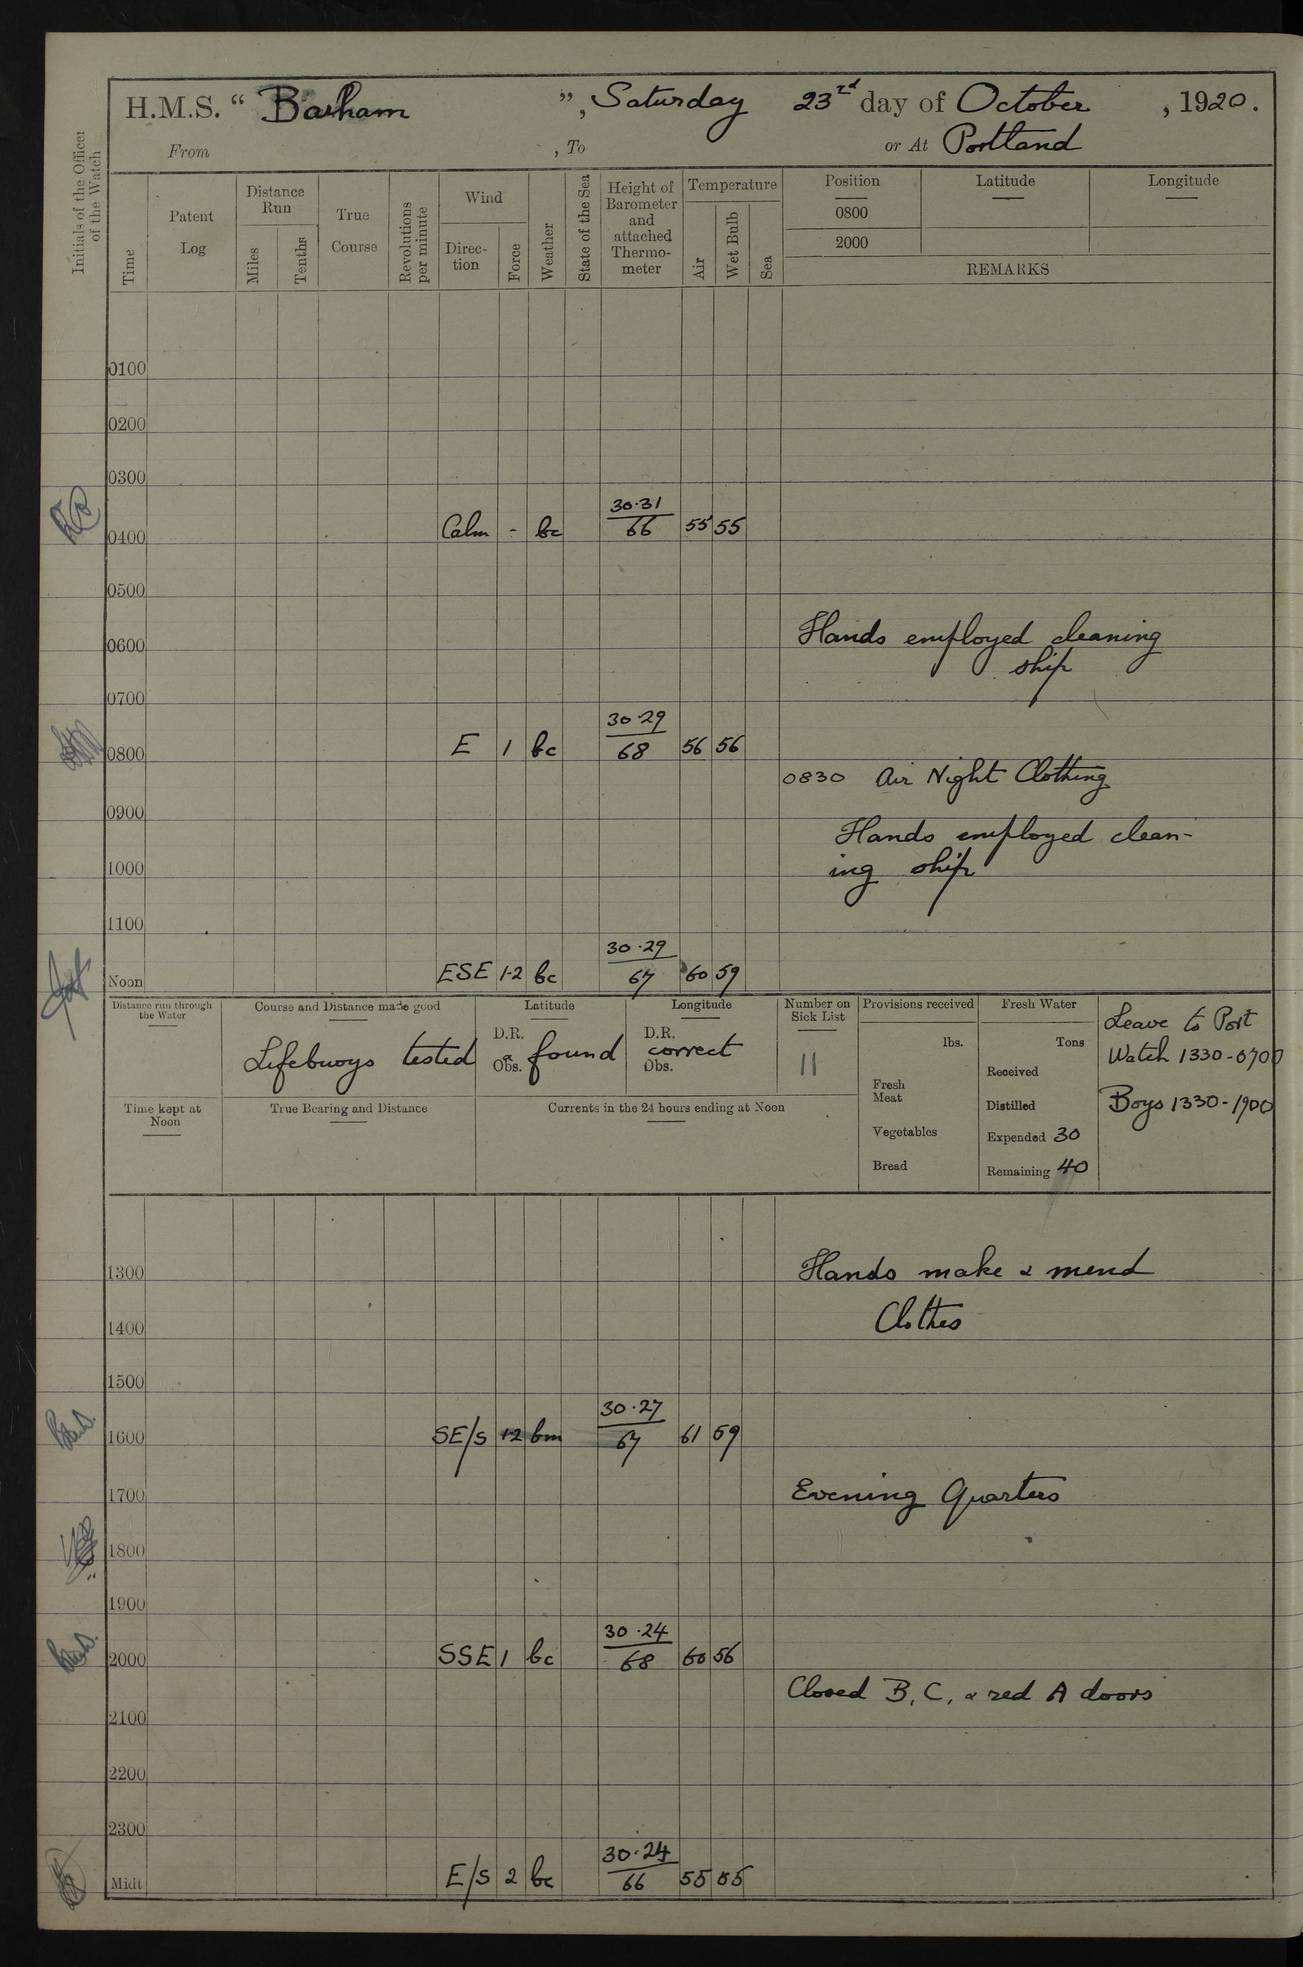 H.M.S. “ Barham ”, Saturday 23rd day of October, 1920.
From , To or At Portland
Initials of the Officer of the Watch
Time
Patent Log
Distance Run
Miles
Tenths
True Course
Revolutions per minute
Wind
Direc-tion
Force
Weather
State of the Sea
Height of Barometer and attached Thermo-meter
Temperature
Air
Wet Bulb
Sea
Position
Latitude
Longitude
0800
2000
REMARKS
0100
0200
0300
0400 Calm - bc 30·31 66 55 55
0500
Hands employed cleaning
0600
ship
0700
0800 E 1 bc 30·29 68 56 56
0830 Air Night Clothing
0900
Hands employed clean-
1000
ing ship
1100
Noon ESE 1-2 bc 30·29 67 60 59
Distance run through the Water
Course and Distance made good
Latitude
Longitude
Number on Sick List
Provisions received
Fresh Water
Leave to Port
D.R.
D.R.
lbs.
Tons
Watch 1330-0700
Lifebuoys tested & found correct
Obs.
Obs.
11
Received
Fresh Meat
Time kept at Noon
True Bearing and Distance
Currents in the 24 hours ending at Noon
Distilled
Boys 1330-1900
Vegetables
Expended 30
Bread
Remaining 40
1300 Hands make & mend
1400 Clothes
1500
1600 SE/S 1-2 bm 30·27 67 61 59
1700 Evening Quarters
1800
1900
2000 SSE 1 bc 30·24 68 60 56
Closed B, C, & red A doors
2100
2200
2300
Midt E/S 2 bc 30·24 66 55 55